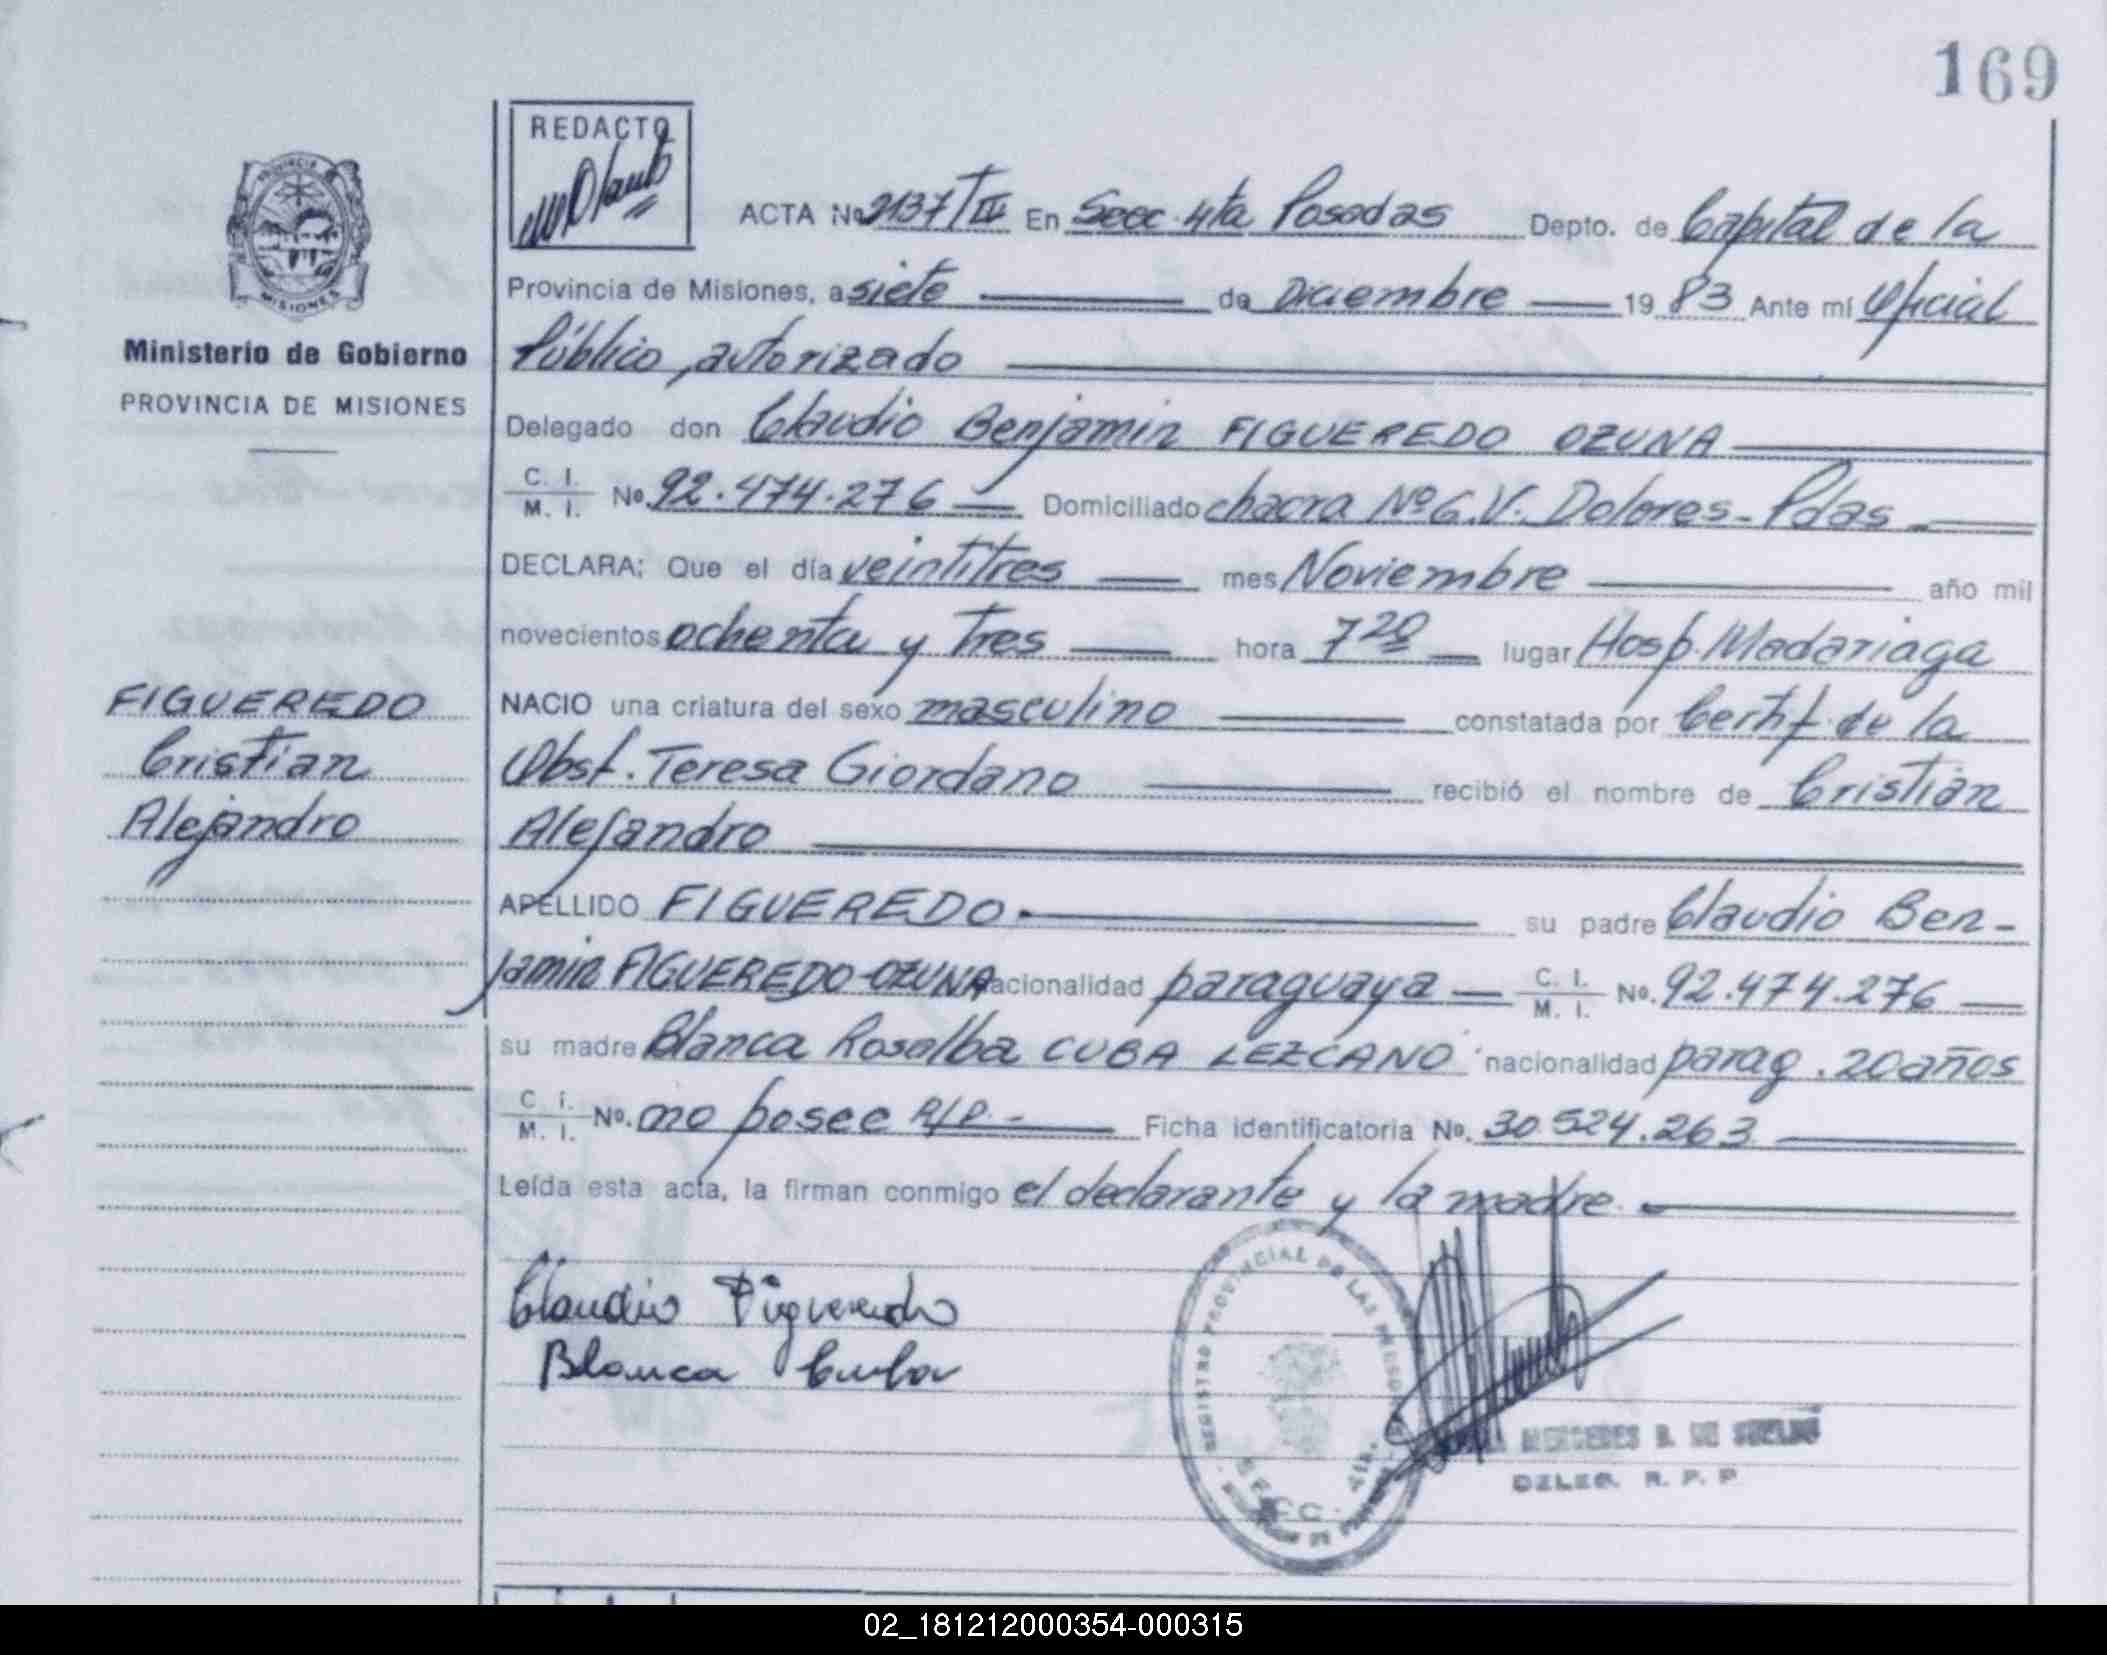 169
REDACTO
ACTA Nº 2137/TIII En Secc. 4ta Posadas Depto. de Capital de la
Provincia de Misiones, a siete de Diciembre 1983 Ante mí Oficial
Ministerio de Gobierno
Público, autorizado
PROVINCIA DE MISIONES
Delegado don Claudio Benjamin FIGUEREDO OZUNA
C. I. M. I. Nº. 92.474.276 Domiciliado chacra Nº 6.V. Dolores - Pdas
DECLARA: Que el día veintitres mes Noviembre año mil
novecientos ochenta y tres hora 7 20 lugar Hosp. Madariaga
FIGUEREDO
Cristian
Alejandro
NACIO una criatura del sexo masculino constatada por Certif. de la
Obst. Teresa Giordano recibió el nombre de Cristian
Alejandro
APELLIDO FIGUEREDO.- su padre Claudio Ben-
jamin FIGUEREDO OZUNA nacionalidad paraguaya C. I. M. I. Nº. 92.474.276
su madre Blanca Rosalba CUBA LEZCANO nacionalidad parag. 20 años
C. I. M. I. Nº. no posee A/P.- Ficha identificatoria Nº. 30.524.263
Leída esta acta, la firman conmigo el declarante y la madre.-
Claudio Figueredo
Blanca Cuba
REGISTRO PROVINCIAL DE LAS PERSONAS
SECC. 4ta.
MERCEDES
DELEG. R. P. P.
02_181212000354-000315